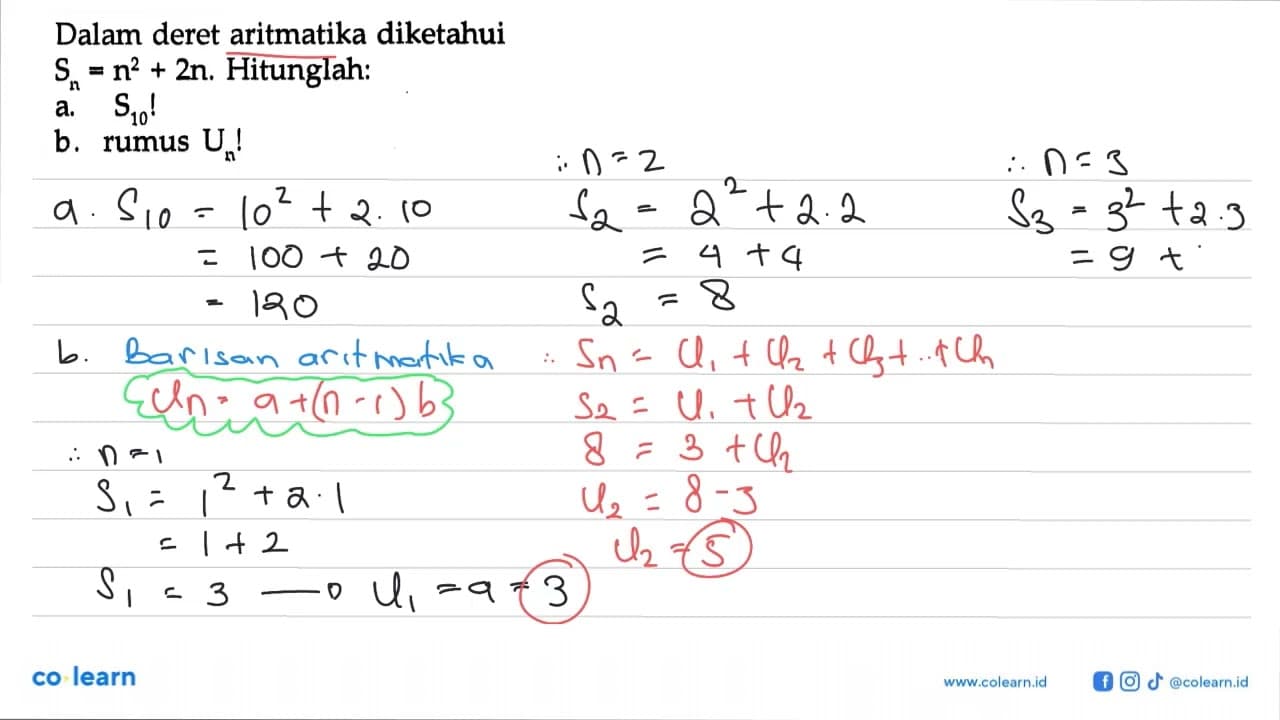 Dalam deret aritmatika diketahui
Sₙ = n² + 2n. Hitunglah:
a. S₁₀!
b. rumus Uₙ!
a. S₁₀ = 10² + 2.10
= 100 + 20
= 120
b. Barisan aritmatika
Uₙ = a + (n-1) b
∴ n = 1
S₁ = 1² + 2.1
= 1 + 2
S₁ = 3 → U₁ = a = 3
∴ n = 2
S₂ = 2² + 2.2
= 4 + 4
S₂ = 8
∴ Sₙ = U₁ + U₂ + U₃ + .. + Uₙ
S₂ = U₁ + U₂
8 = 3 + U₂
U₂ = 8 - 3
U₂ = 5
∴ n = 3
S₃ = 3² + 2.3
= 9 +
co·learn
www.colearn.id
@colearn.id